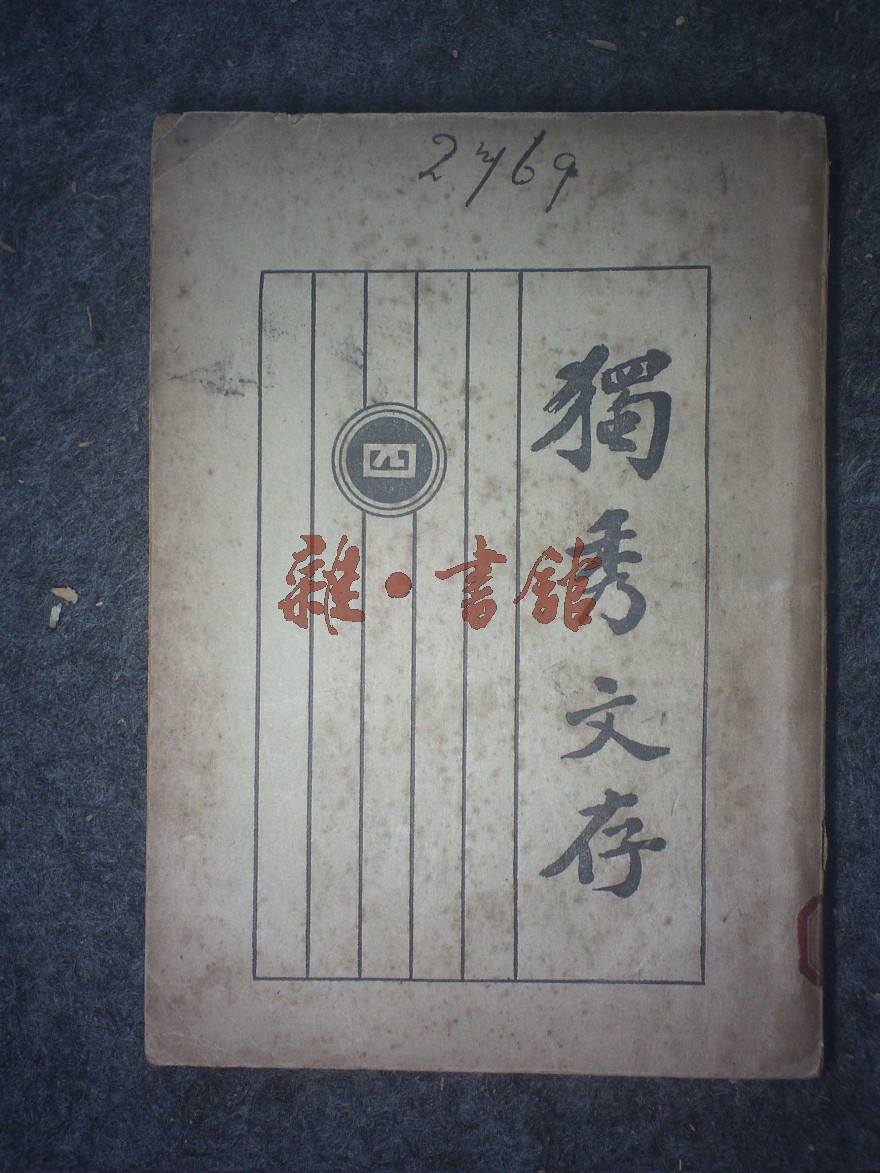 2769
獨秀文存
四
雜·書館